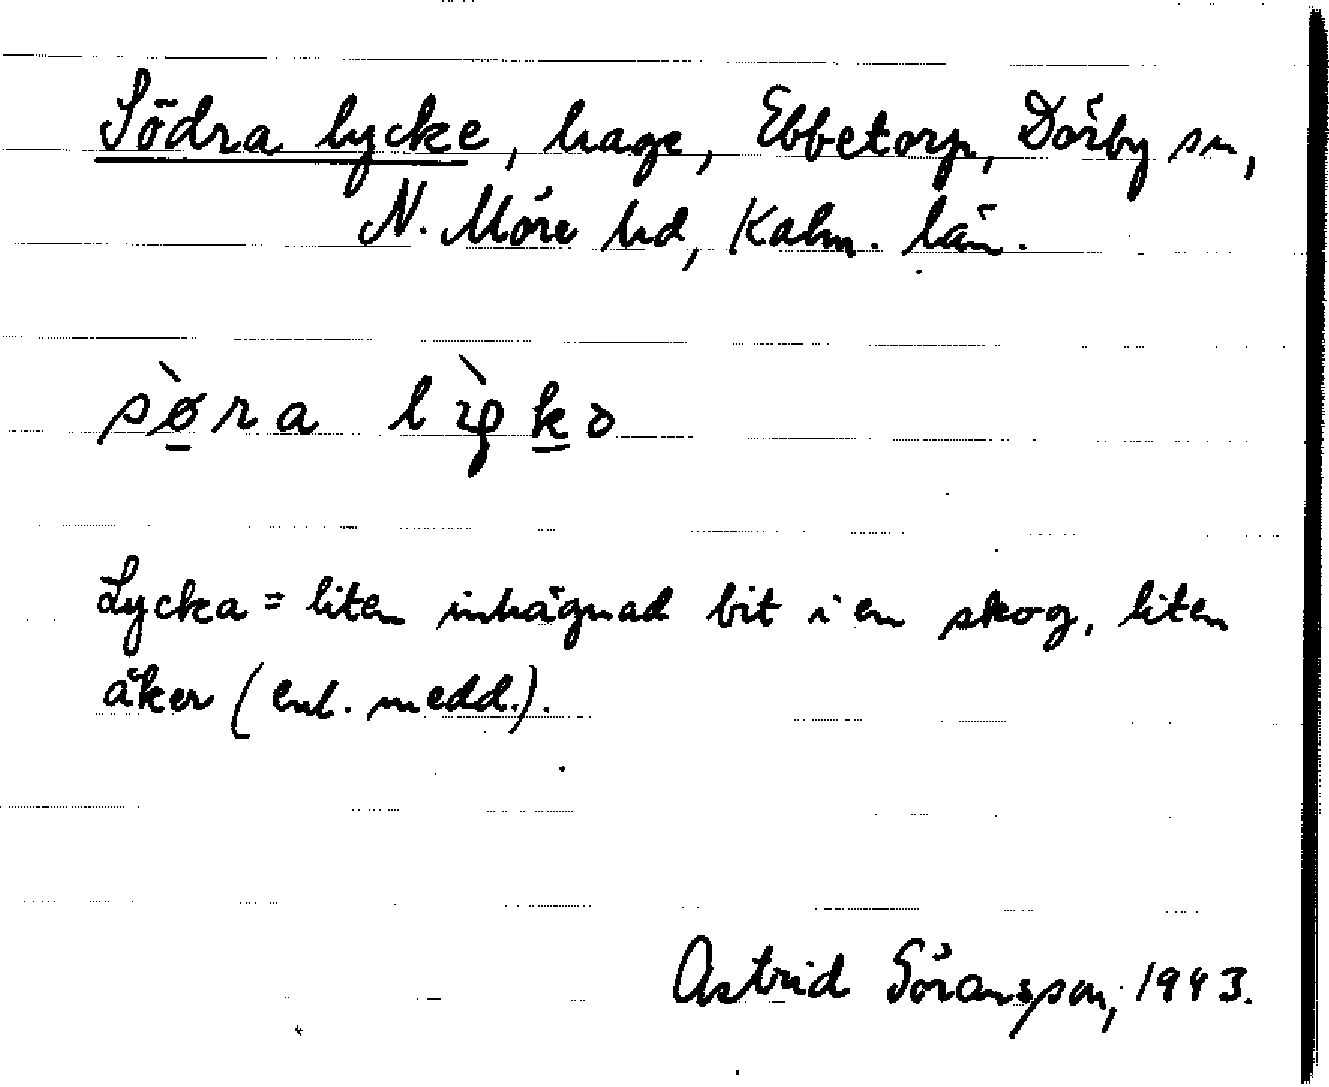 Södra lycke, hage, Ebbetorp, Dörby sn,
N. Möre hd, Kalm. län.
sø̱̀ra
Lycka = liten inhägnad bit i en skog, liten
åker (enl. medd.).
Astrid Göransson, 1943.